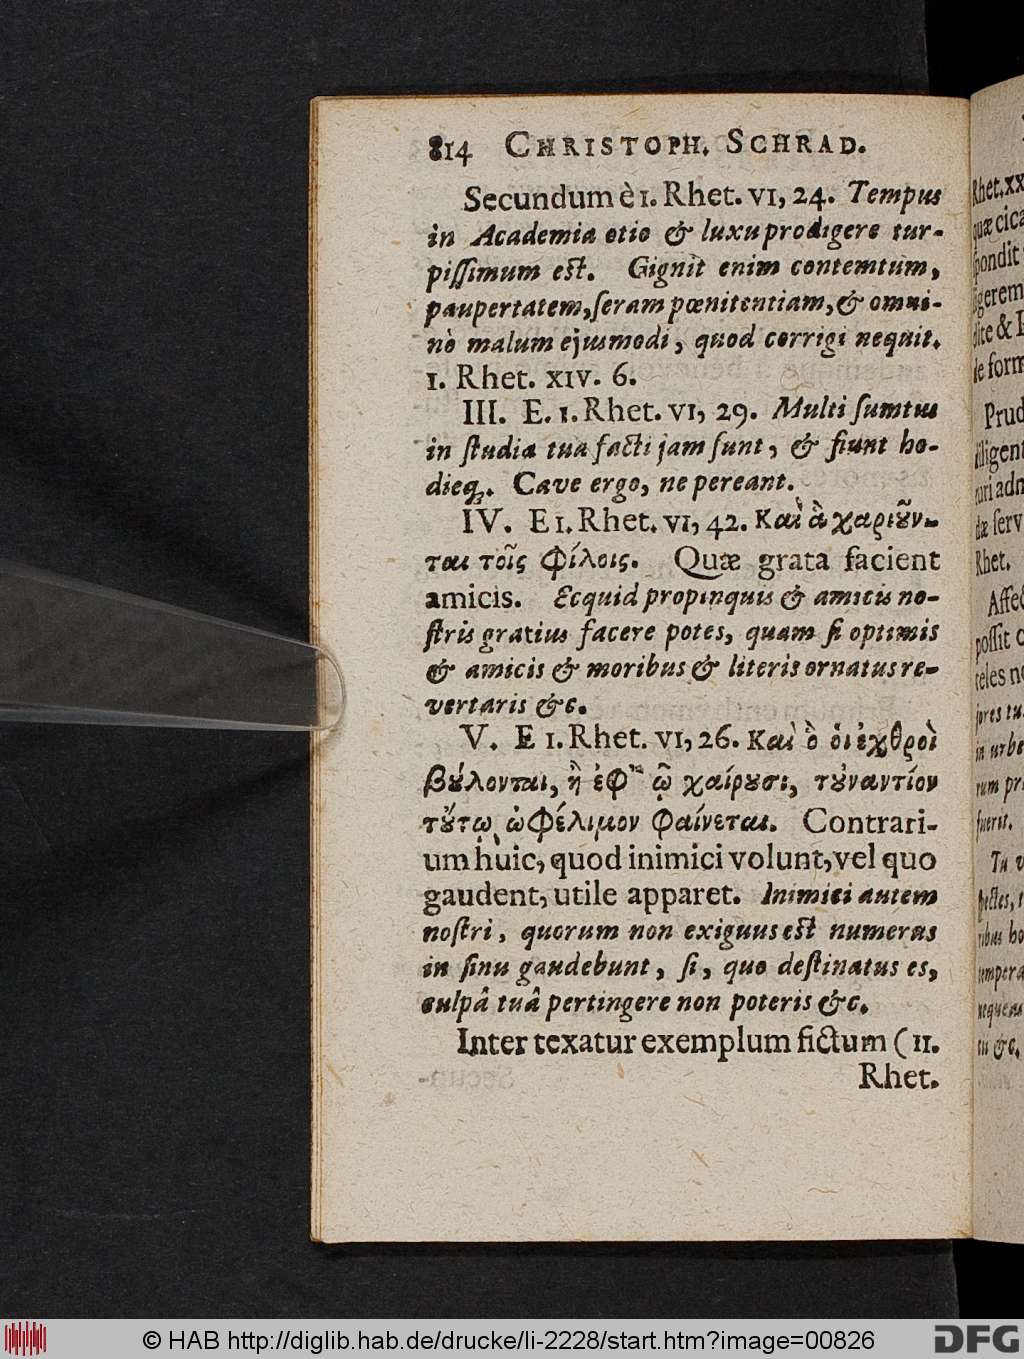 814 CHRISTOPH. SCHRAD.
Secundum è 1. Rhet. VI, 24. Tempus
in Academia otio & luxu prodigere tur-
pissimum est. Gignit enim contemtum,
paupertatem, seram pœnitentiam, & omni-
nò malum ejusmodi, quod corrigi nequit.
1. Rhet. XIV. 6.
III. E. 1. Rhet. VI, 29. Multi sumtus
in studia tua facti jam sunt, & fiunt ho-
dieq́;. Cave ergo, ne pereant.
IV. E 1. Rhet. VI, 42. Καὶ ἃ χαριȣ̃ν-
ται τοῖς φίλοις. Quæ grata facient
amicis. Ecquid propinquis & amicis no-
stris gratius facere potes, quam si optimis
& amicis & moribus & literis ornatus re-
vertaris &c.
V. E 1. Rhet. VI, 26. Καὶ ὃ ὁι ἐχθροὶ
βȣ́λονται, ἢ ἐφ᾽ ᾧ χαίρȣσι, τȣ̓ναντίον
τȣ́τῳ ὠφέλιμον φαίνεται. Contrari-
um huic, quod inimici volunt, vel quo
gaudent, utile apparet. Inimici autem
nostri, quorum non exiguus est numerus
in sinu gaudebunt, si, quo destinatus es,
culpâ tuâ pertingere non poteris &c.
Inter texatur exemplum fictum (II.
Rhet.
Rhet. xx
quæ cica
spondit
ligerem
dite & I
de form
Prud
diligent
turi adm
dæ serv
Rhet.
Affec
possit c
teles no
jores tu
in urbe
rum pr
fuerit.
Tu v
ribus ho
tempera
nequeas
tu &c.
© HAB http://diglib.hab.de/drucke/li-2228/start.htm?image=00826
DFG